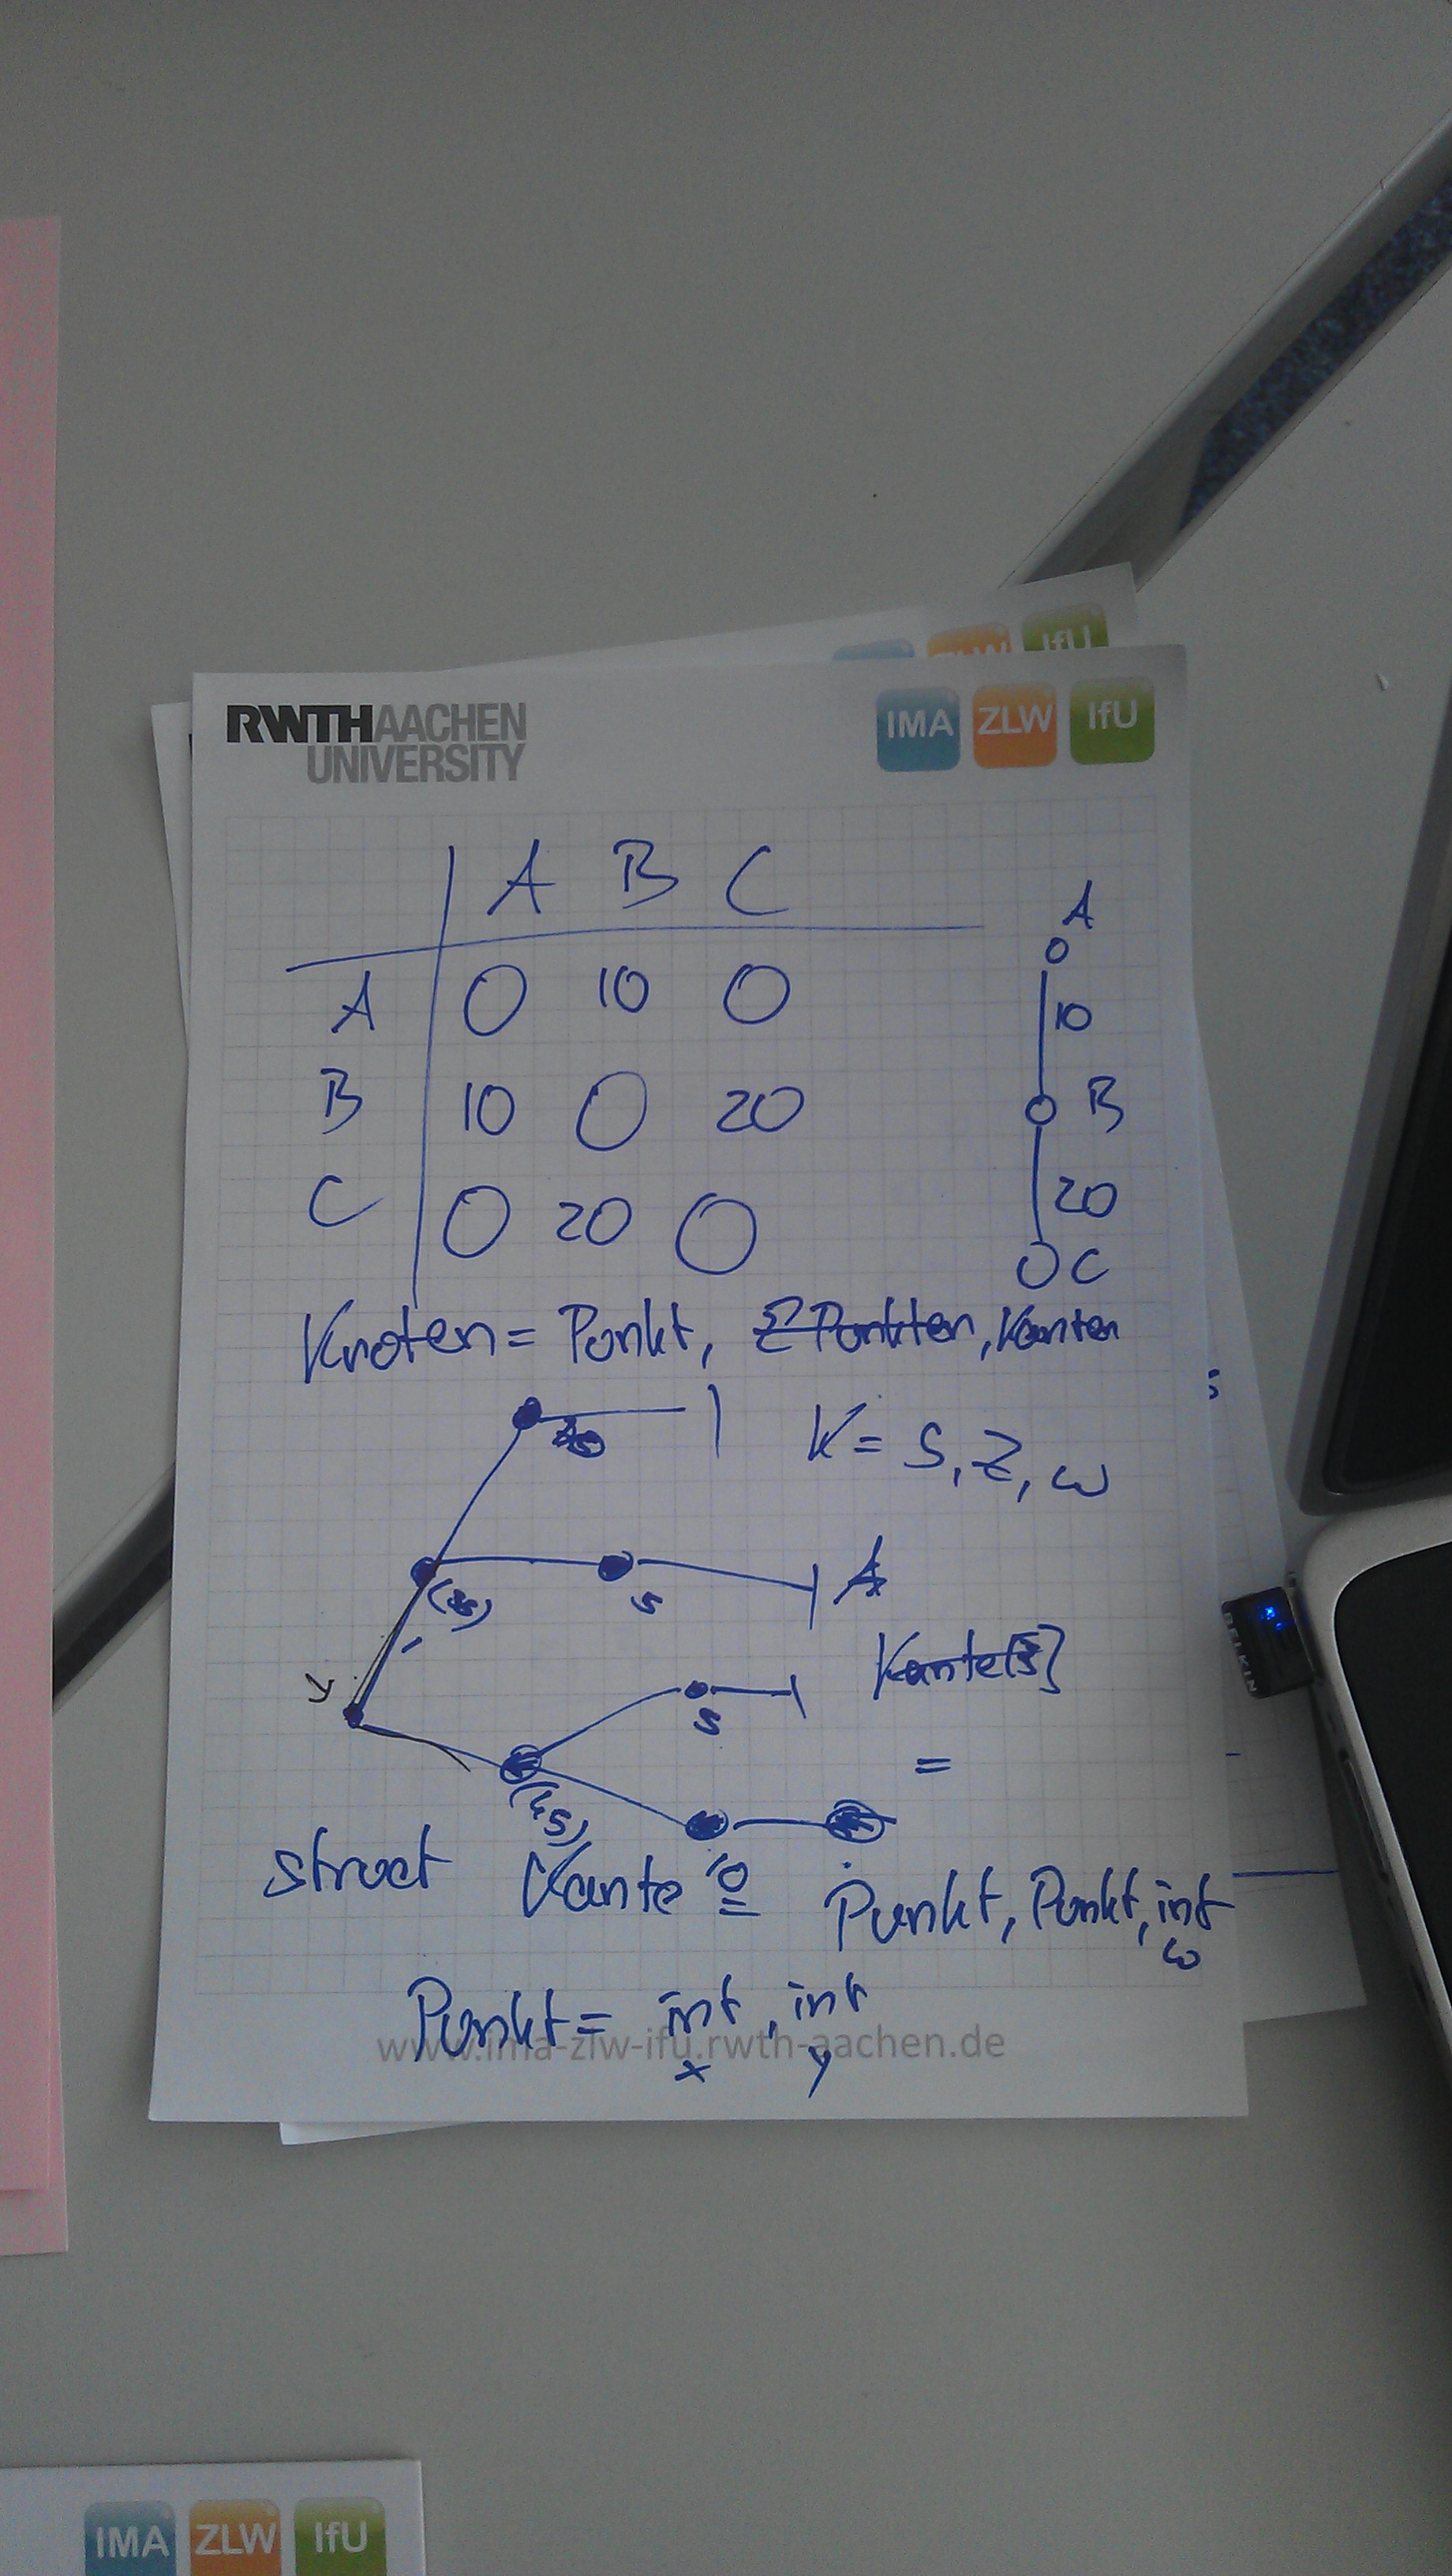 IfU
RWTHAACHEN
UNIVERSITY
IMA ZLW IfU
A B C
A 0 10 0
B 10 0 20
C 0 20 0
A
10
B
20
C
Knoten = Punkt, Σ Punkten, Kanten
K = S, Z, w
5
A
Kante[5]
y
5
=
(45)
10
struct Kante = Punkt, Punkt, int
w
Punkt = int, int
x y
www.ima-zlw-ifu.rwth-aachen.de
BELKIN
IMA ZLW IfU